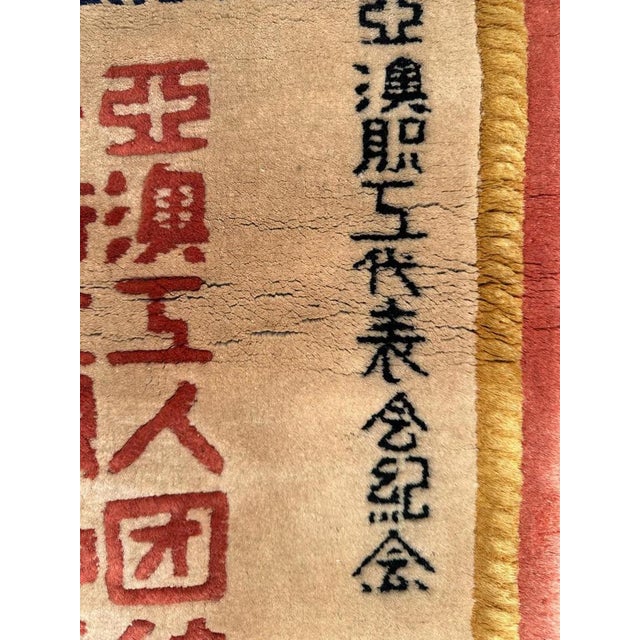 亞澳职工代表会紀念
亞澳工人团